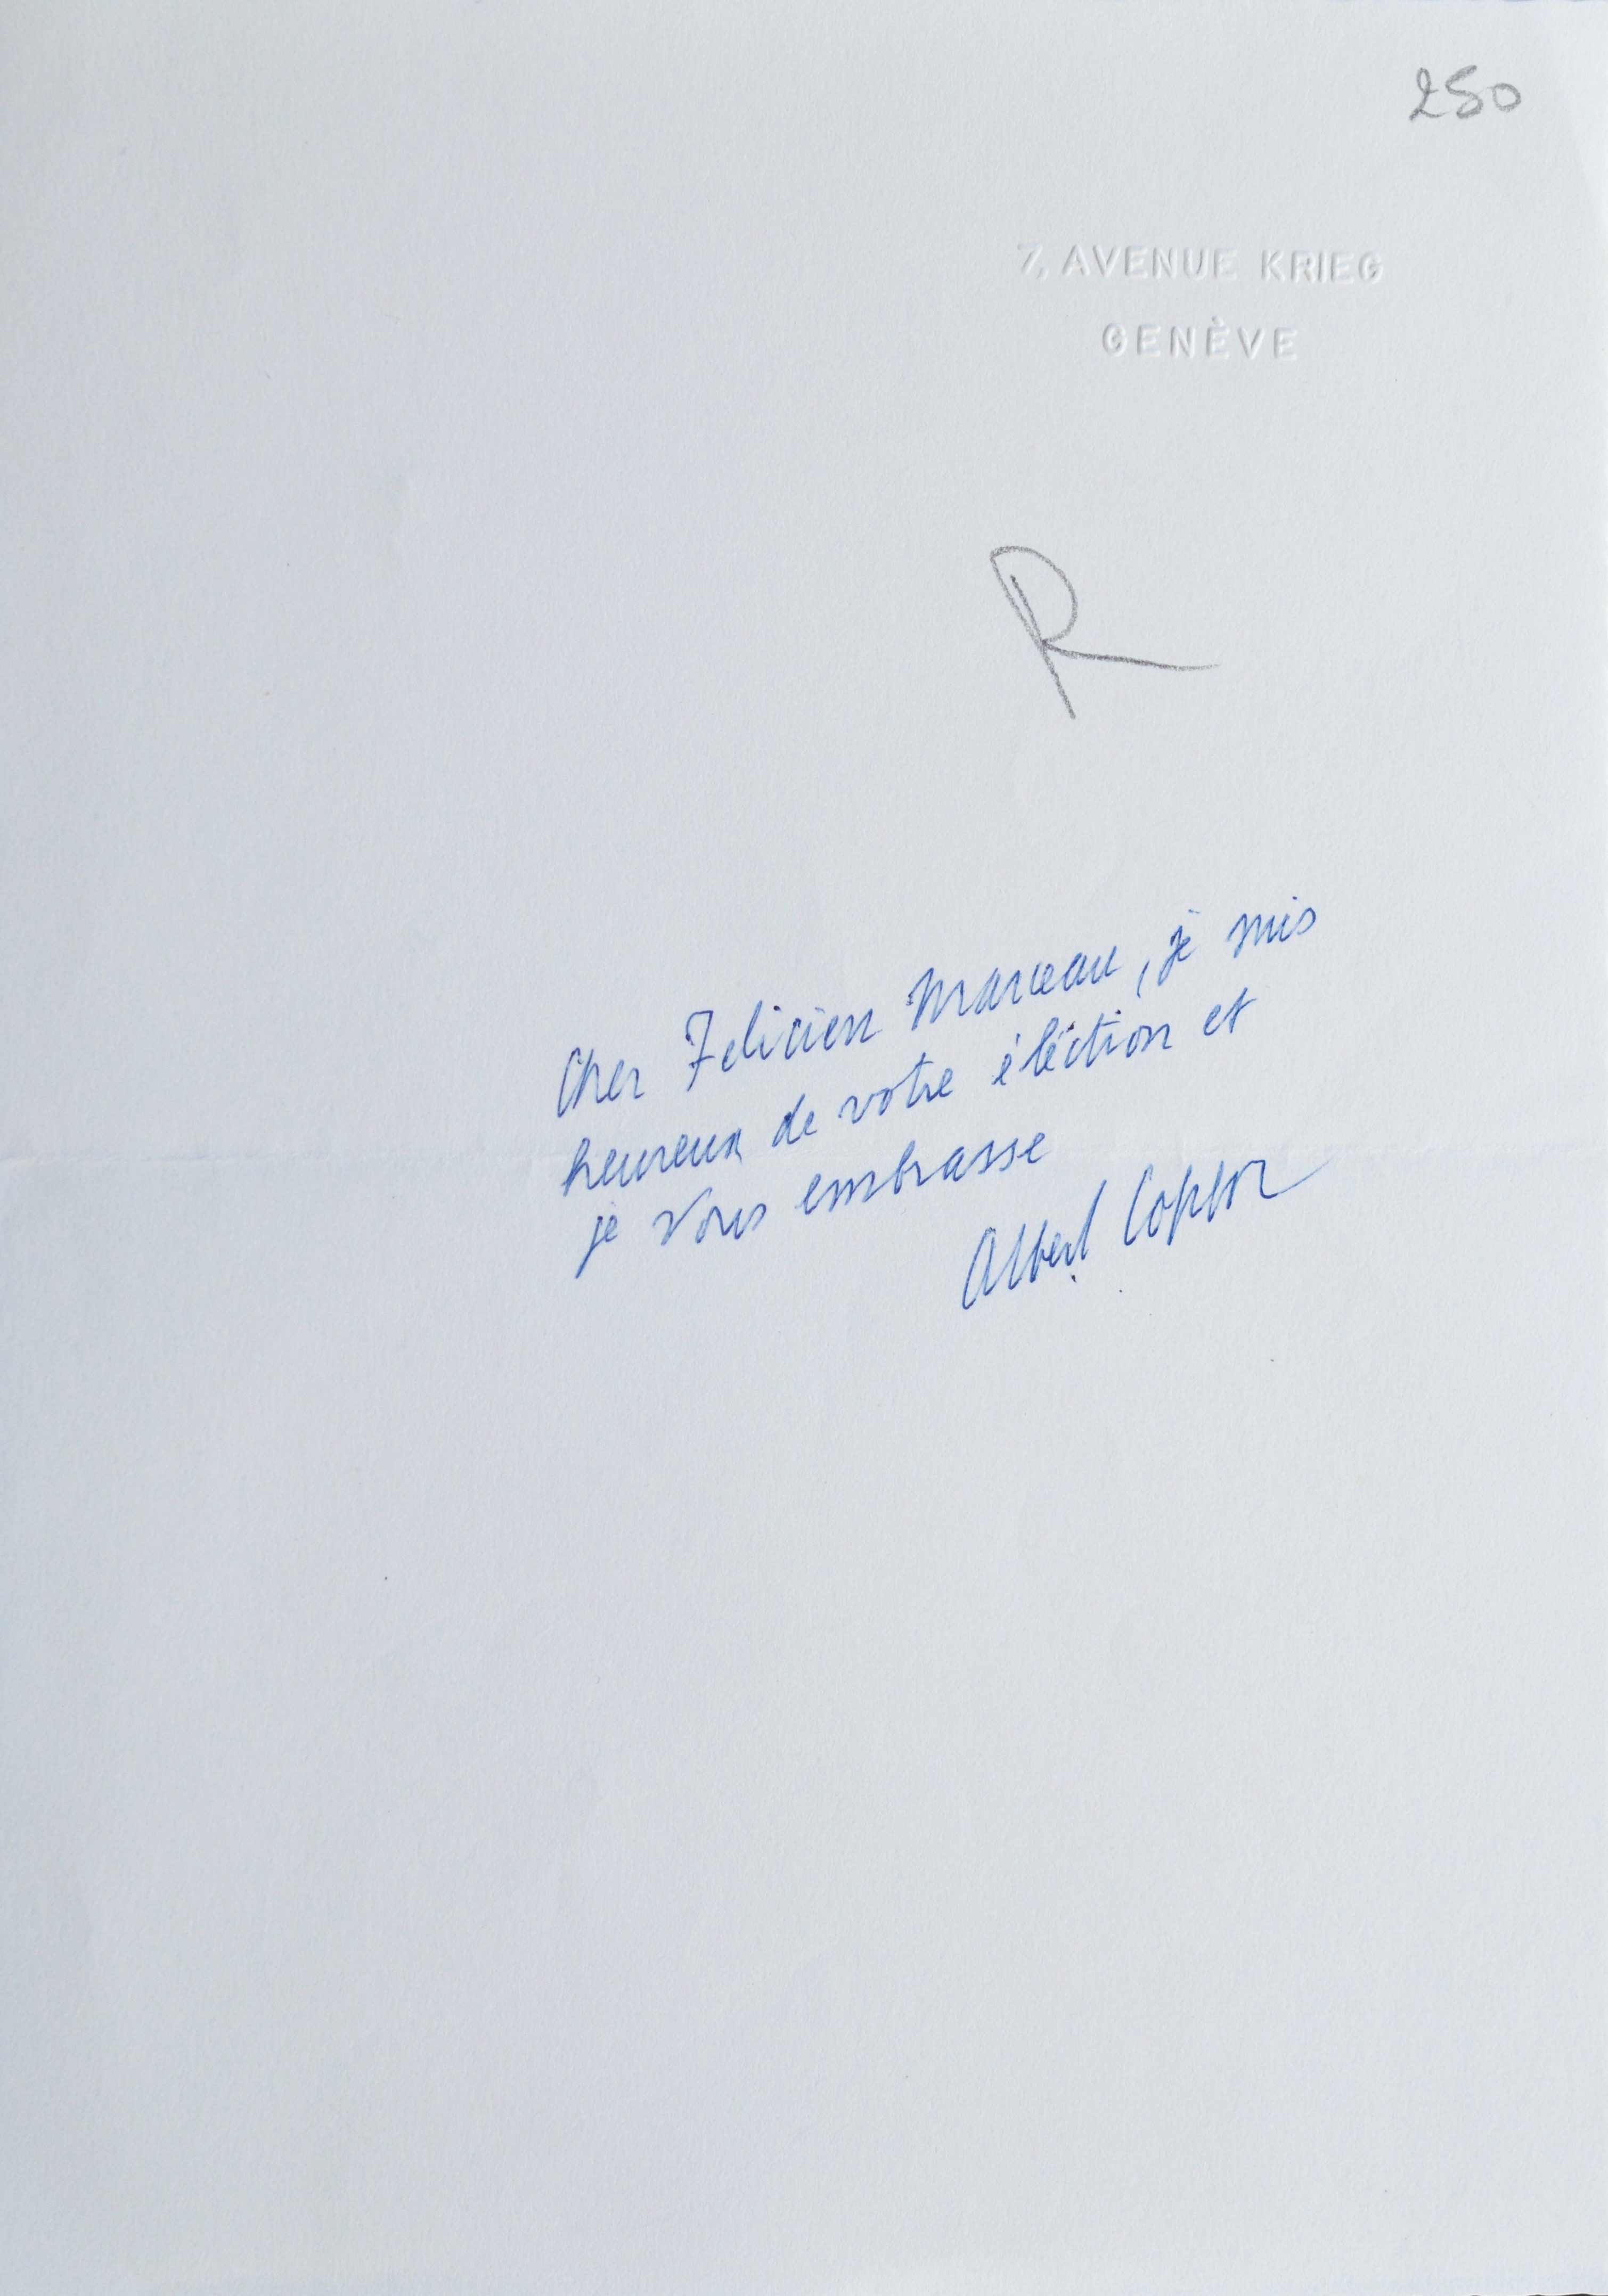 250
7, AVENUE KRIEG
GENÈVE
R
Cher Felicien Marceau, je suis
heureux de votre éléction et
je vous embrasse
Albert Cohen